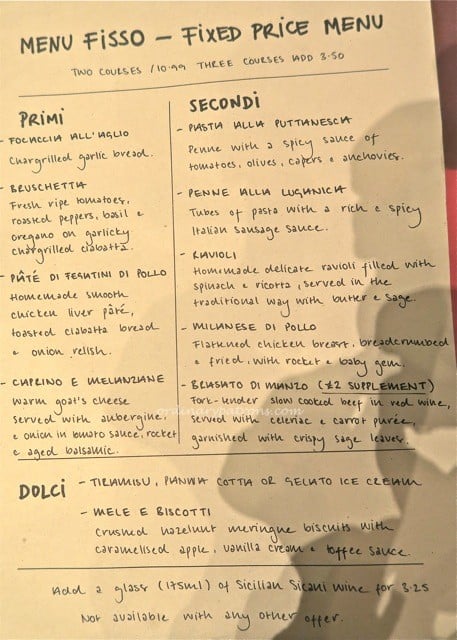 MENU FISSO – FIXED PRICE MENU
TWO COURSES / 10.99 THREE COURSES ADD 3.50
PRIMI
- FOCACCIA ALL'AGLIO
Chargrilled garlic bread.
- BRUSCHETTA
Fresh ripe tomatoes,
roasted peppers, basil e
oregano on garlicky
chargrilled ciabatta.
- PÂTÉ DI FEGATINI DI POLLO
Homemade smooth
chicken liver pâté,
toasted ciabatta bread
e onion relish.
- CAPRINO E MELANZANE
warm goat's cheese
served with aubergine,
e onion in tomato sauce, rocket
e aged balsamic.
SECONDI
- PASTA ALLA PUTTANESCA
Penne with a spicy sauce of
tomatoes, olives, capers e anchovies.
- PENNE ALLA LUGANICA
Tubes of pasta with a rich e spicy
Italian sausage sauce.
- RAVIOLI
Homemade delicate ravioli filled with
spinach e ricotta, served in the
traditional way with butter e sage.
- MILANESE DI POLLO
Flattened chicken breast, breadcrumbed
e fried, with rocket e baby gem.
- BRASATO DI MANZO (£2 SUPPLEMENT)
Fork-under slow cooked beef in red wine,
served with celeriac e carrot purée,
garnished with crispy sage leaves.
ordinarypatrons.com
DOLCI - TIRAMISU, PANNA COTTA OR GELATO ICE CREAM
- MELE E BISCOTTI
Crushed hazelnut meringue biscuits with
caramelised apple, vanilla cream e toffee sauce.
Add a glass (175ml) of Sicilian Sicani wine for 3.25
Not available with any other offer.